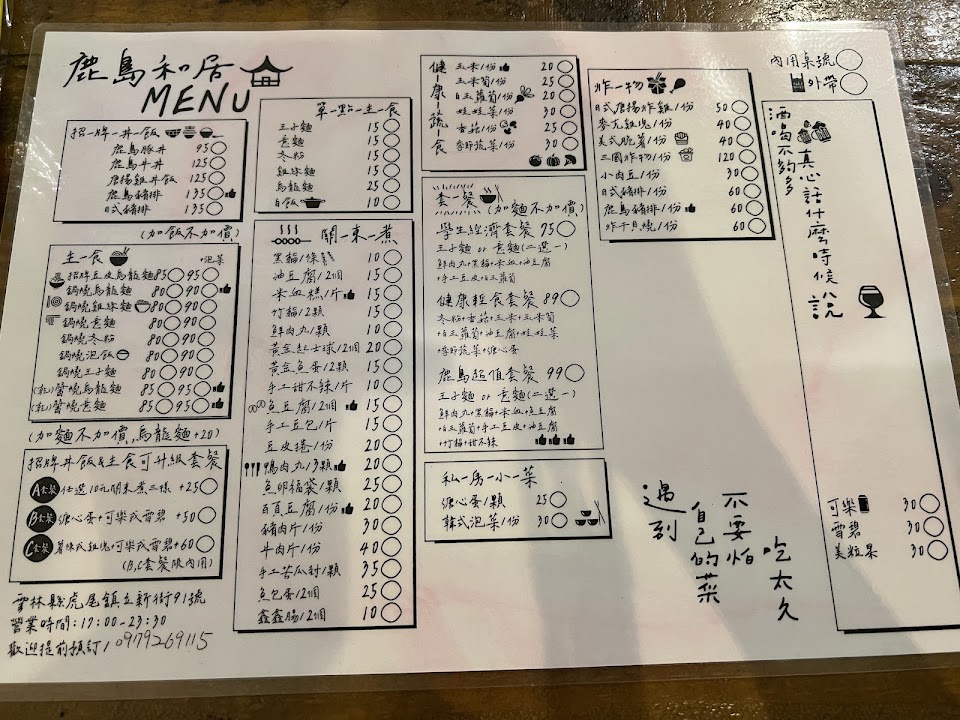 鹿島和居
MENU
招-牌-丼-飯
鹿島豚丼 95
鹿島牛丼 125
唐揚雞丼飯 125
鹿島豬排 135
日式豬排 135
(加飯不加價)
主-食
+泡菜
招牌豆皮烏龍麵 85 95
鍋燒烏龍麵 80 90
鍋燒雞絲麵 80 90
鍋燒意麵 80 90
鍋燒冬粉 80 90
鍋燒泡飯 80 90
鍋燒王子麵 80 90
(乾)醬燒烏龍麵 85 95
(乾)醬燒意麵 85 95
(加麵不加價,烏龍麵+20)
招牌丼飯&主食可升級套餐
A套餐 任選10元關東煮三樣 +25
B套餐 溏心蛋+可樂或雪碧 +50
C套餐 薯條或雞塊+可樂或雪碧 +60
(B,C套餐限內用)
雲林縣虎尾鎮立新街91號
營業時間:17:00-23:30
歡迎提前預訂/0979269115
單-點-主-食
王子麵 15
意麵 15
冬粉 15
雞絲麵 15
烏龍麵 25
白飯 10
關-東-煮
黑輪/條 10
油豆腐/2個 15
米血糕/1片 15
竹輪/2顆 15
鮮肉丸/1顆 10
黃金起士球/2個 20
黃金魚蛋/2顆 15
手工甜不辣/1片 10
魚豆腐/2個 15
手工豆包/1片 15
豆皮捲/1份 20
鴨肉丸/3顆 20
魚卵福袋/1顆 25
百頁豆腐/1份 20
豬肉片/1份 30
牛肉片/1份 40
手工苦瓜封/1顆 35
魚包蛋/2個 25
鑫鑫腸/2個 10
健-康-蔬-食
玉米/1份 20
玉米筍/1份 25
白玉蘿蔔/1份 20
娃娃菜/1份 30
香菇/1份 25
季節蔬菜/1份 30
套-餐
(加麵不加價)
學生經濟套餐 75
王子麵 or 意麵(二選一)
鮮肉丸+黑輪+米血+油豆腐
+手工豆皮+白玉蘿蔔
健康輕食套餐 89
冬粉+香菇+玉米+玉米筍
+白玉蘿蔔+油豆腐+娃娃菜
+季節蔬菜+溏心蛋
鹿島超值套餐 99
王子麵 or 意麵(二選一)
鮮肉丸+黑輪+米血+魚豆腐
+白玉蘿蔔+手工豆皮+油豆腐
+竹輪+甜不辣
私-房-小-菜
溏心蛋/1顆 25
韓式泡菜/1份 30
炸-物
日式唐揚炸雞/1份 50
麥克雞塊/1份 40
美式脆薯/1份 40
三國炸物/1份 120
小肉豆/1份 30
日式豬排/1份 60
鹿島豬排/1份 60
炸干貝燒/1份 60
內用桌號
外帶
酒喝不夠多
真心話什麼時候說
可樂 30
雪碧 30
美粒果 30
遇到
自己的菜
不要怕
吃太久